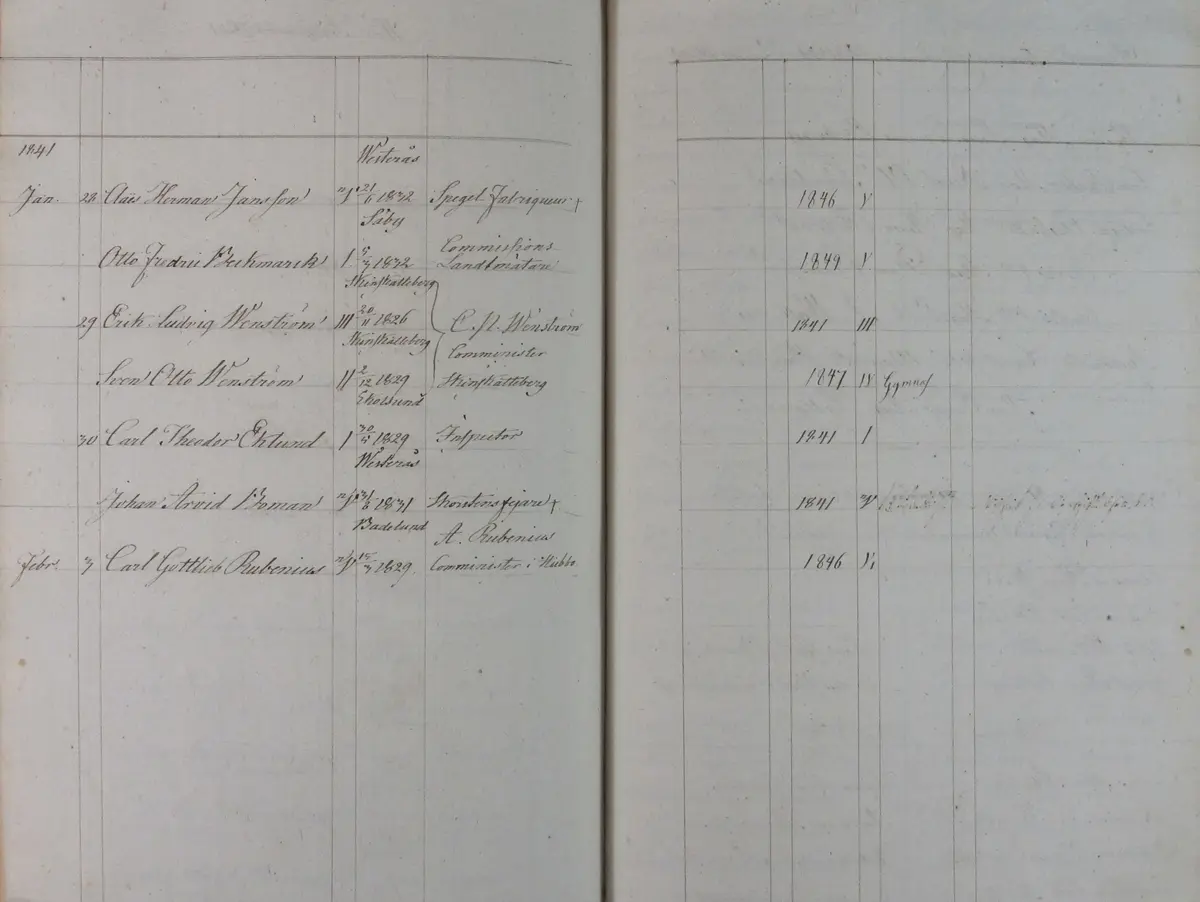 1841
Westerås
Jan. 28 Claës Herman Jansson I 21/6 1832 Spegel Fabriqueur † 1846 V
Säby
Commissions
Otto Fredric Beckmarck I 5/3 1832 Landtmätare 1849 V.
Skinskatteberg
29 Erik Ludvig Wenström III 20/11 1826 C. N. Wenström 1841 III
Skinskatteberg
Comminister
Sven Otto Wenström II 2/12 1829 Skinskatteberg 1847 IV Gymnas
Ekolsund
30 Carl Theodor Eklund I 30/5 1829 Inspector 1841 I
Westerås
Johan Arvid Boman 1831 Skorstensfejare † 1841
Badelund
A. Rubenius
Febr. 3 Carl Gottlieb Rubenius 15/3 1829 Comminister i Hubbo 1846 V.